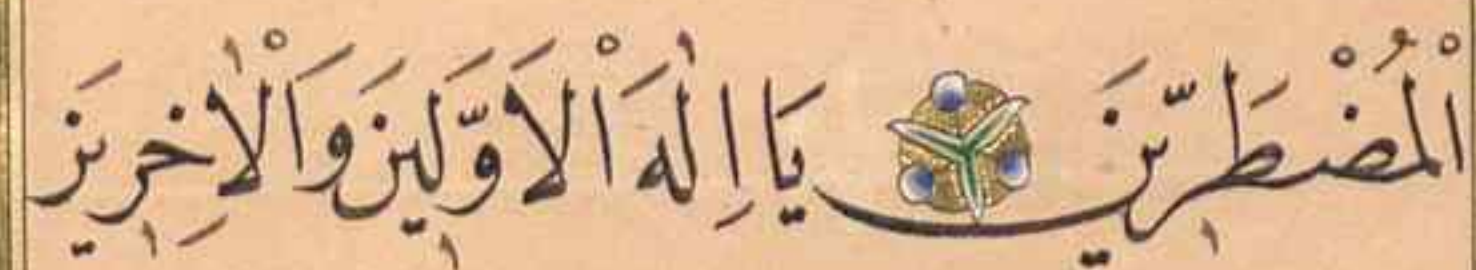 الْمُضْطَرّ۪ينَ يَا اِلٰهَ الْاَوَّل۪ينَ وَالْاٰخِر۪ينَ